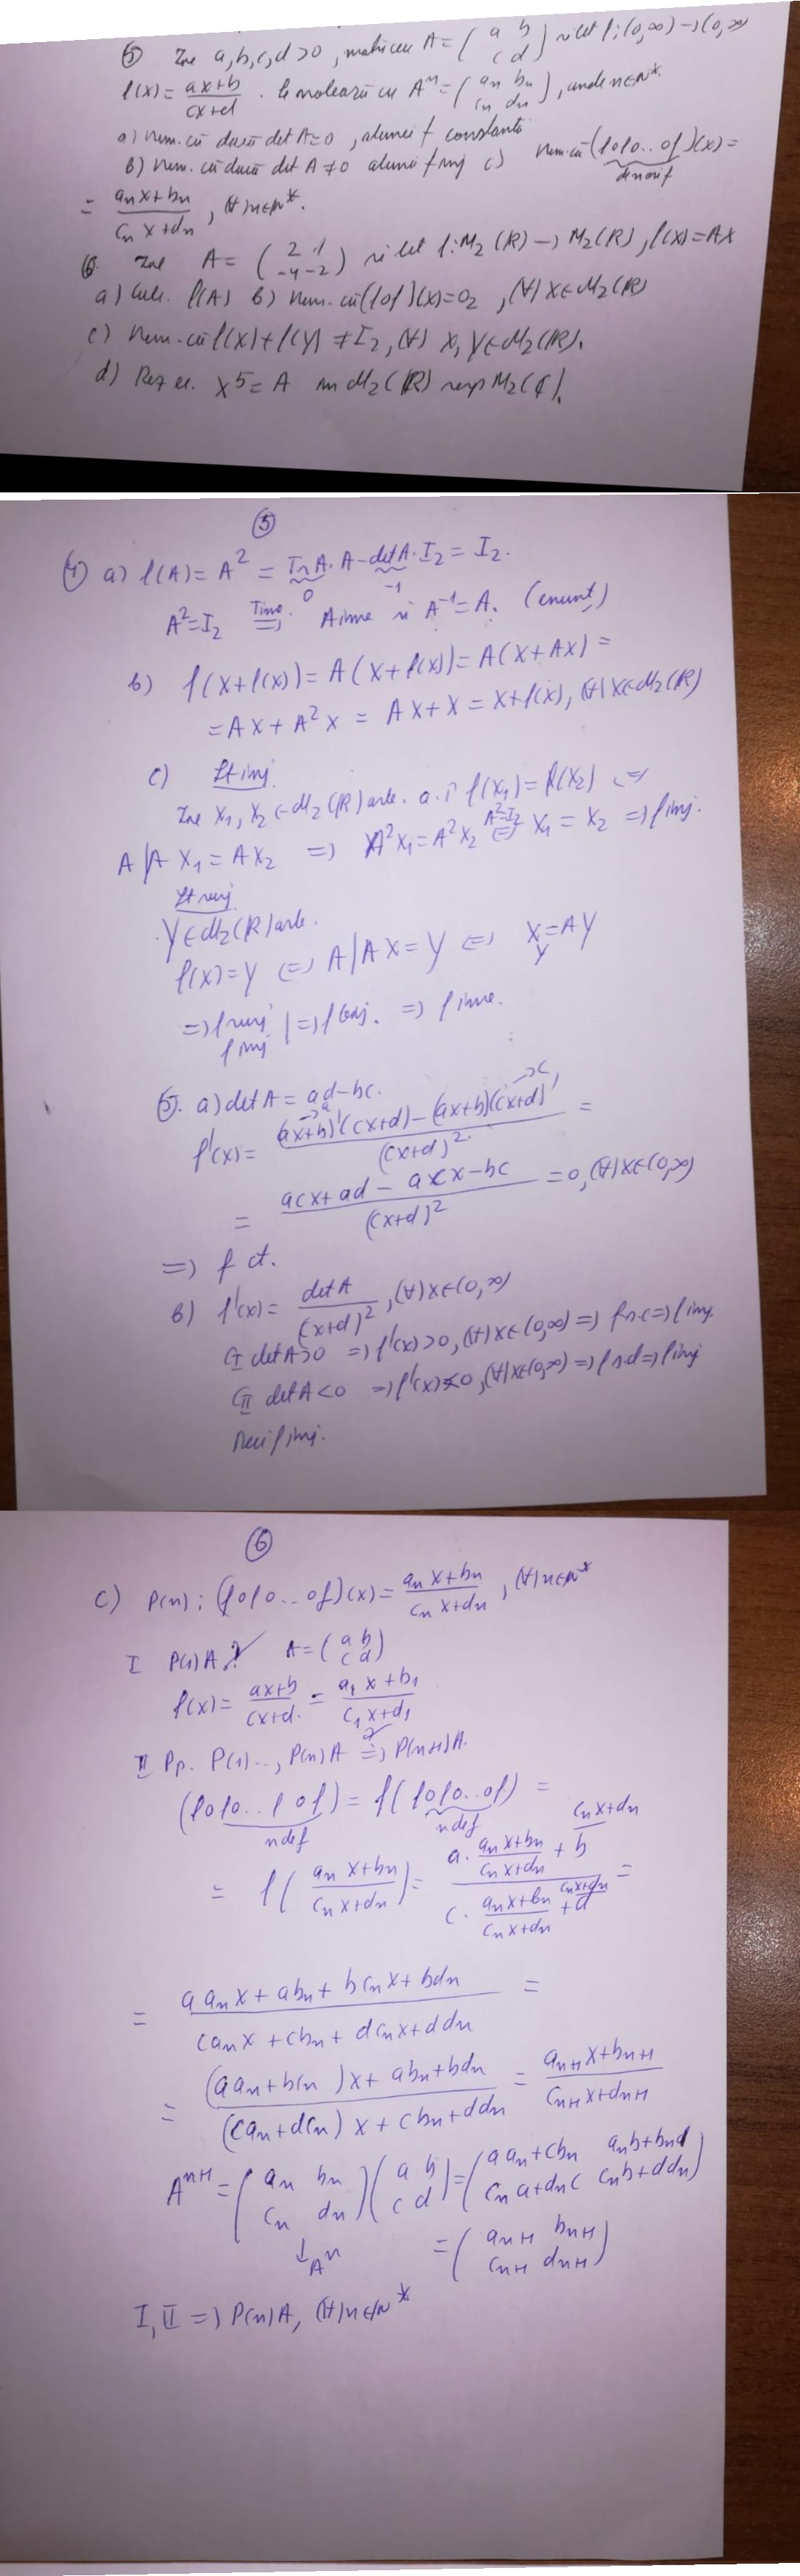 ⑤ Fie a,b,c,d>0, matricea A = ( a b / c d ) și let f:(0,∞)→(0,∞)
f(x) = (ax+b)/(cx+d). Se notează cu Aⁿ = ( an bn / cn dn ), unde n∈N*.
a) Dem. că dacă det A=0, atunci f constantă
b) Dem. că dacă det A ≠ 0 atunci f inj c) Dem. că (fofo..of)(x) =
de n ori f
= (an x+bn)/(cn x+dn), (∀) n∈N*.
⑥ Fie A = ( 2 1 / -4 -2 ) și let f:M2(R)→M2(R), f(x)=AX
a) Calc. f(A) b) Dem. că (fof)(x)=O2, (∀) X∈M2(R)
c) Dem. că f(x)+f(y) ≠ I2, (∀) X,Y∈M2(R).
d) Rez ec. X⁵ = A în M2(R) resp M2(C).
⑤
④ a) f(A) = A² = Tr A · A - det A · I2 = I2.
0 -1
A²=I2 ⇒ A inv și A⁻¹ = A. (enunț)
b) f(X+f(X)) = A(X+f(X)) = A(X+AX) =
= AX + A²X = AX+X = X+f(X), (∀) X∈M2(R)
c) f inj
Fie X1, X2 ∈ M2(R) arb. a.î f(X1) = f(X2) ⇔
A | A X1 = AX2 ⇒ A²X1 = A²X2 ⇔ (A²=I2) X1 = X2 ⇒ f inj.
f surj
Y∈M2(R) arb.
f(X) = Y ⇔ A | AX = Y ⇔ X_Y = AY
⇒ f surj | ⇒ f bij. ⇒ f inv.
f inj
5. a) det A = ad-bc.
f'(x) = ((ax+b)'(cx+d) - (ax+b)(cx+d)')/(cx+d)² =
= (acx+ad - acx-bc)/(cx+d)² = 0, (∀) x∈(0,∞)
⇒ f ct.
b) f'(x) = det A/(cx+d)², (∀) x∈(0,∞)
C I det A>0 ⇒ f'(x)>0, (∀) x∈(0,∞) ⇒ f s.c ⇒ f inj.
C II det A<0 ⇒ f'(x)<0, (∀) x∈(0,∞) ⇒ f s.d ⇒ f inj
Deci f inj.
⑥
c) P(n): (fofo..of)(x) = (an x+bn)/(cn x+dn), (∀) n∈N*
I P(1) A? A = ( a b / c d )
f(x) = (ax+b)/(cx+d) = (a1 x+b1)/(c1 x+d1)
II Pp. P(1).., P(n) A ⇒? P(n+1) A.
(fofo..f of) = f(fofo..of) =
n de f n de f
= f( (an x+bn)/(cn x+dn) ) = (a · (an x+bn)/(cn x+dn) + b)/(c · (an x+bn)/(cn x+dn) + d) =
= (a an x + abn + bcn x + bdn)/(can x + cbn + dcn x + ddn) =
= ((aan+bcn)x + abn+bdn)/((can+dcn)x + cbn+ddn) = (an+1 x+bn+1)/(cn+1 x+dn+1)
Aⁿ⁺¹ = ( an bn / cn dn )( a b / c d ) = ( aan+cbn anb+bnd / cna+dnc cnb+ddn )
↓ Aⁿ = ( an+1 bn+1 / cn+1 dn+1 )
I, II ⇒ P(n) A, (∀) n∈N*